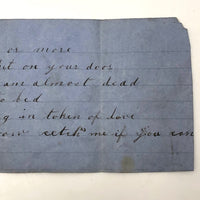 or more
it on your door
am almost dead
o bed
g in token of love
now cetch me if you can